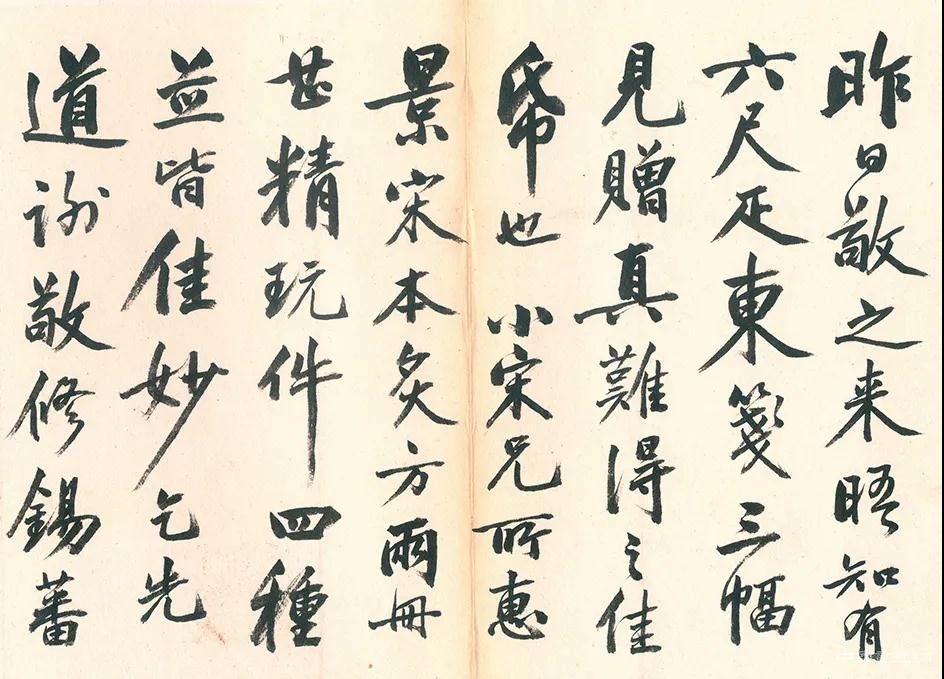 昨日敬之来晤知有
六尺疋東箋三幅
見贈真難得之佳
帋也 小宋兄所惠
景宋本灸方兩冊
甚精玩件四種
並皆佳妙乞先
道謝敬修錫蕃